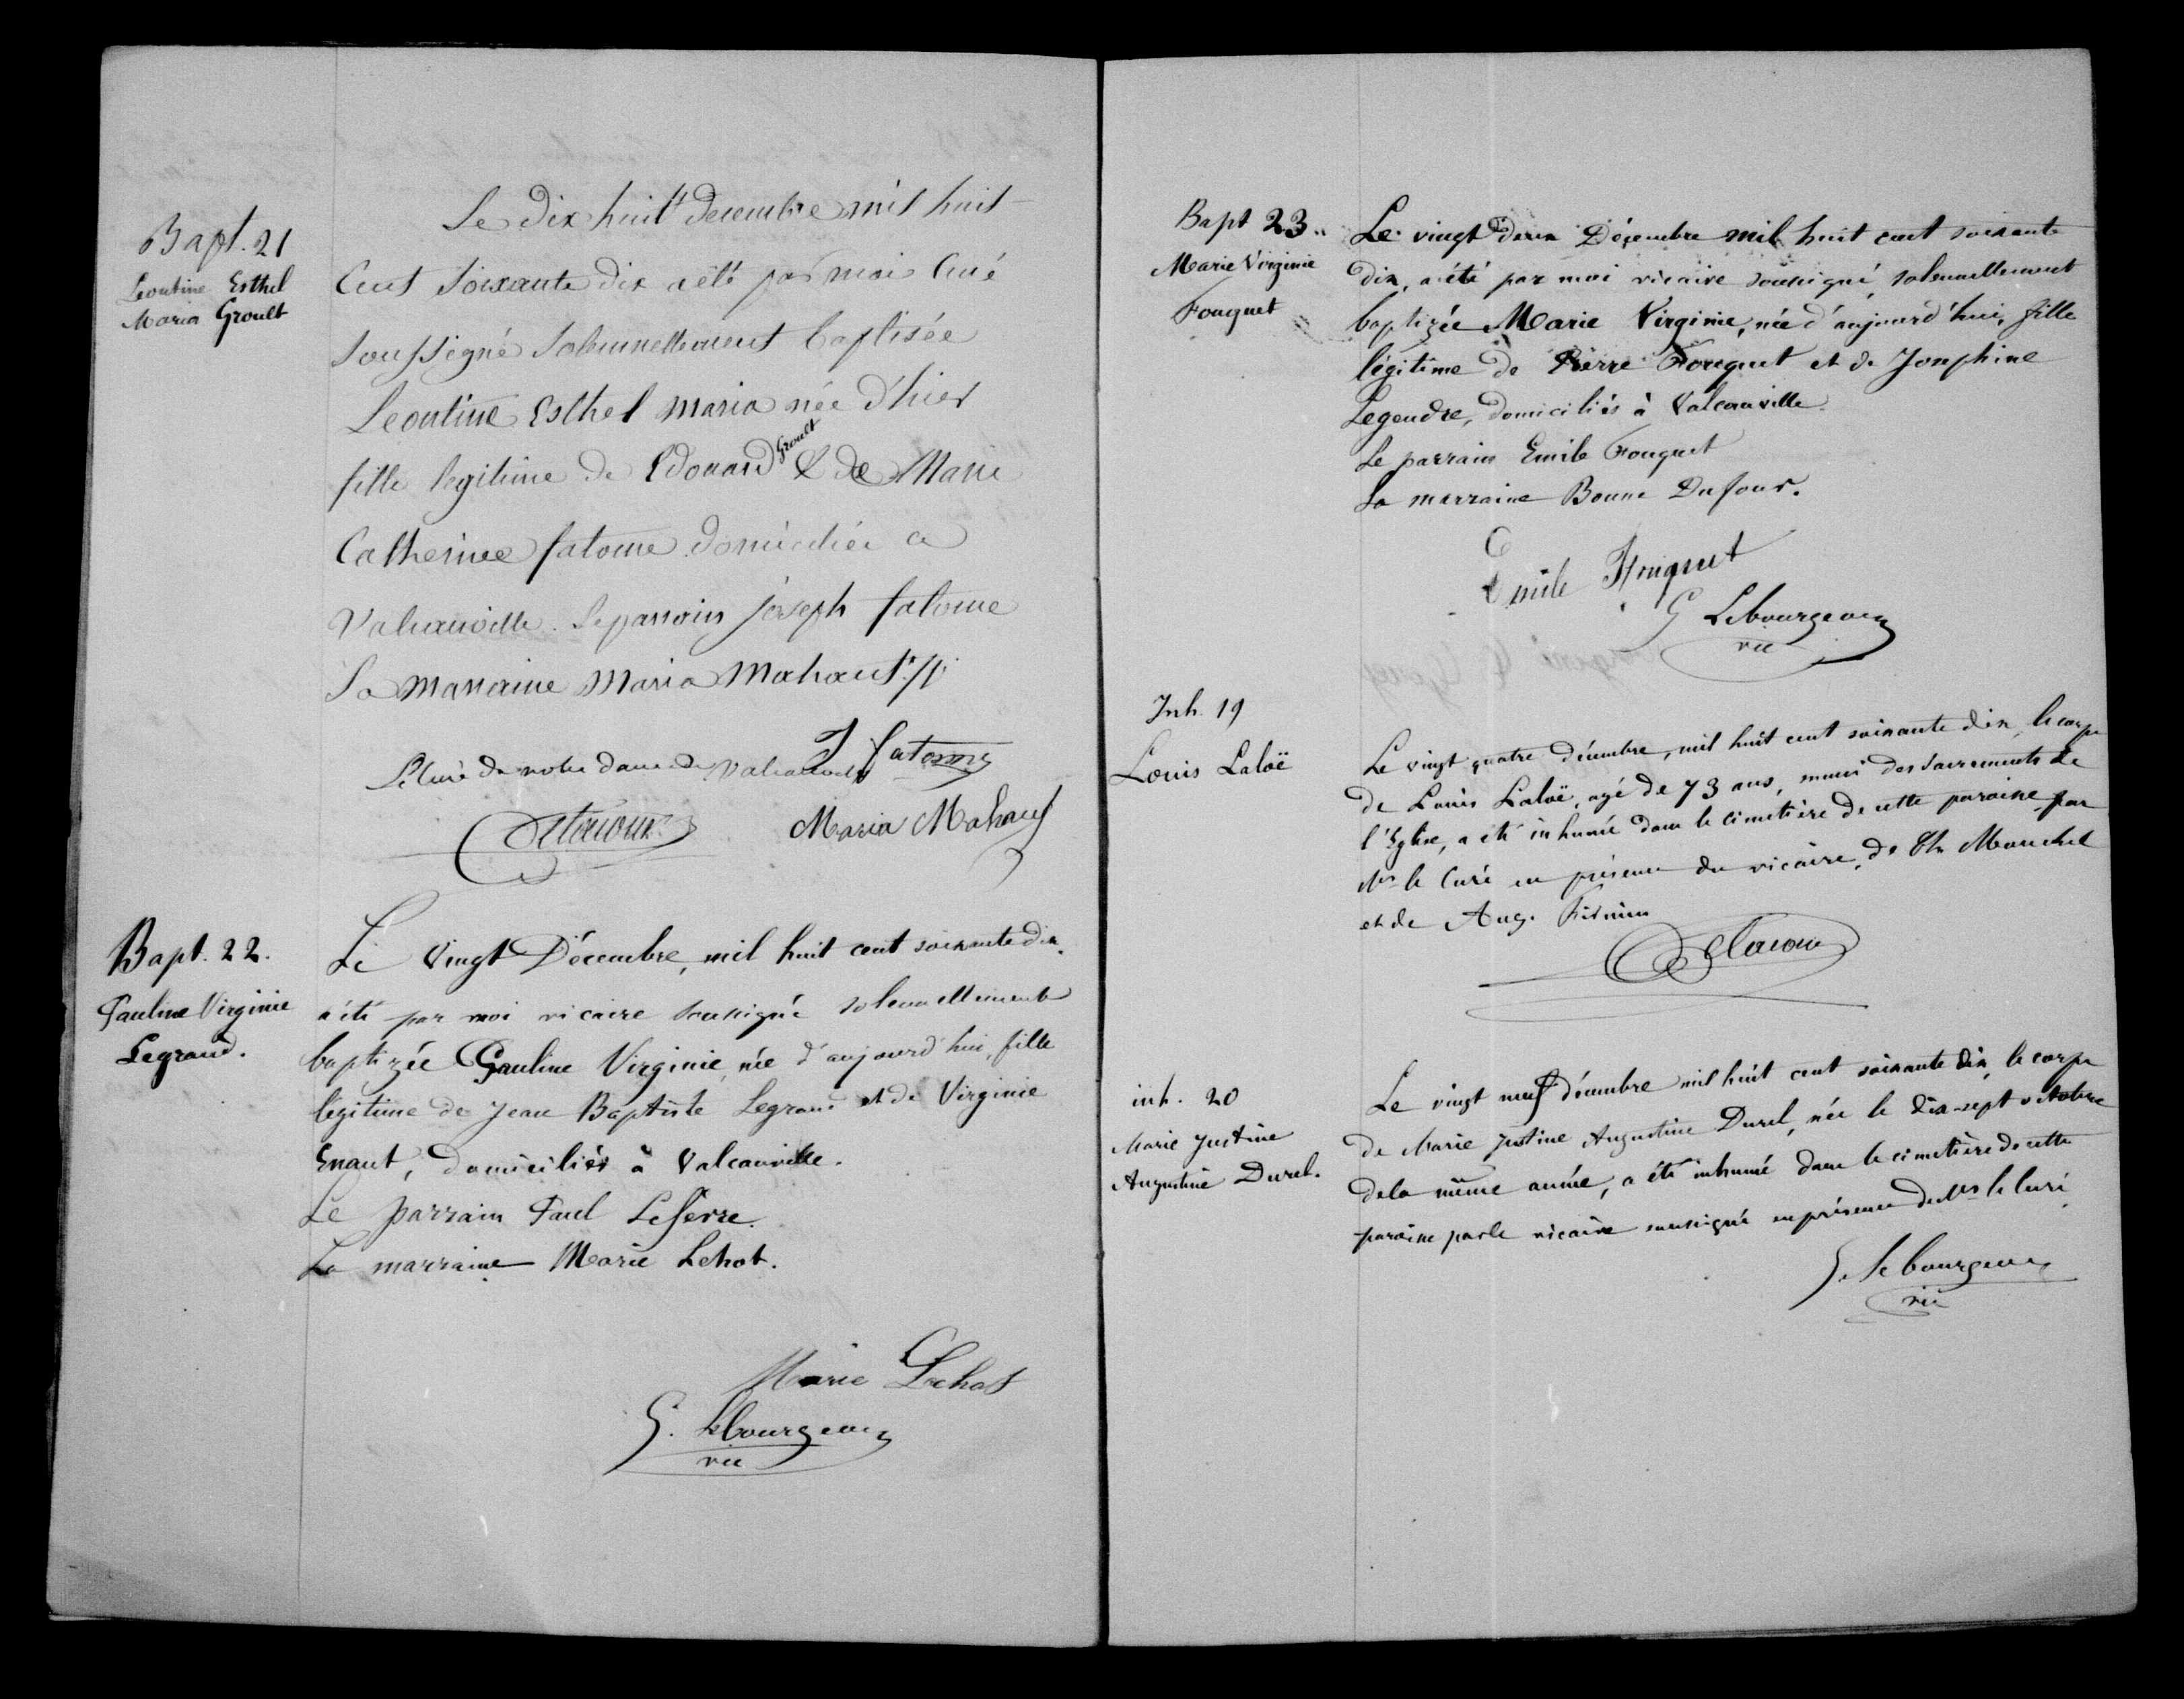 Bapt. 21
Leontine Esthel
Maria Groult
Le dix huit decembre mil huit
Cent Soixante dix a été par moi Curé
soussigné solennellement baptisée
Leontine Esthel Maria née d'hier
fille legitime de Edouard Groult & de Marie
Catherine fatome domiciliée a
Valcanville. Le parrain joseph fatome
La marraine Maria Mahaut
Le Curé de notre dame de Valcanville J fatome
Delacour Maria Mahaut
Bapt. 22.
Pauline Virginie
Legrand.
Le Vingt Décembre, mil huit cent soixante dix,
a été par moi vicaire soussigné solennellement
baptizée Pauline Virginie, née d'aujourd'hui, fille
légitime de Jean Baptiste Legrand et de Virginie
Enaut, domiciliés à Valcanville.
Le parrain Paul Lefèvre.
La marraine Marie Lehot.
Marie Lehot
G. Lebourgeois
vic
Bapt 23.
Marie Virginie
Fouquet
Le vingt deux Décembre mil huit cent soixante
dix, a été par moi vicaire soussigné, solennellement
baptizée Marie Virginie, née d'aujourd'hui, fille
légitime de Pierre Fouquet et de Josephine
Legendre, domiciliés à Valcanville.
Le parrain Emile Fouquet
La marraine Bonne Dufour.
Emile Fouquet
G Lebourgeois
vic
Inh. 19
Louis Laloë
Le vingt quatre décembre, mil huit cent soixante dix, le corps
de Louis Laloë, agé de 73 ans, muni des sacrements de
l'Eglise, a été inhumé dans le cimetière de cette paroisse par
Mr le Curé en présence du vicaire, de Th. Mouchel
et de Aug.
Delacour
inh. 20
Marie Justine
Augustine Durel.
Le vingt neuf décembre mil huit cent soixante dix, le corps
de Marie Justine Augustine Durel, née le dix-sept octobre
de la même année, a été inhumé dans le cimetière de cette
paroisse par le vicaire soussigné en présence de Mr le Curé.
G. Lebourgeois
vic